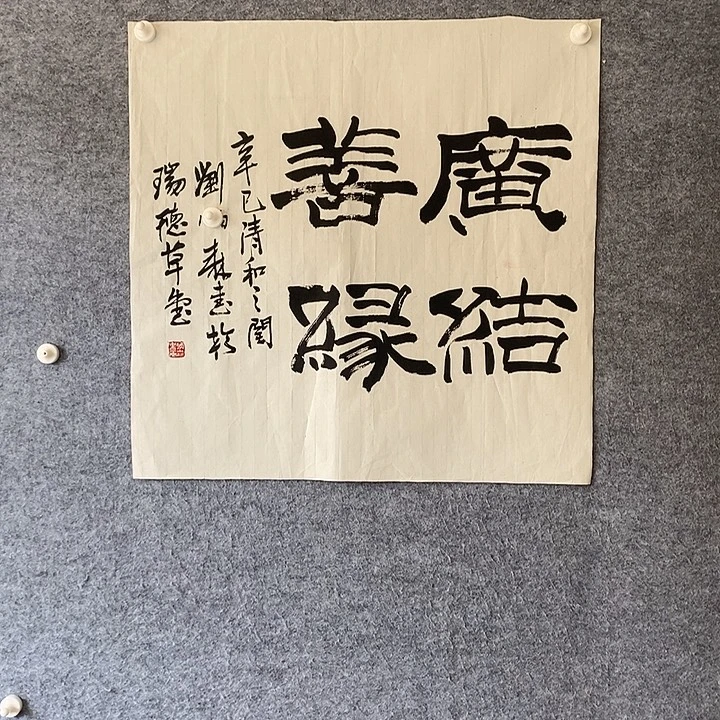 廣結
善緣
辛巳清和之閏
劉 森書於
瑞德草堂